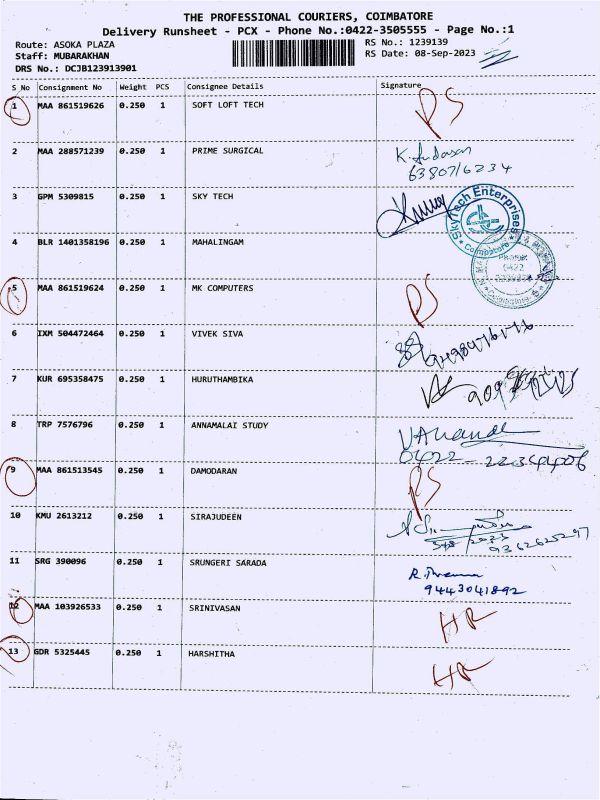 THE PROFESSIONAL COURIERS, COIMBATORE
Delivery Runsheet - PCX - Phone No.:0422-3505555 - Page No.:1
Route: ASOKA PLAZA RS No.: 1239139
Staff: MUBARAKHAN RS Date: 08-Sep-2023
DRS No.: DCJB123913901
S No Consignment No Weight PCS Consignee Details Signature
1 MAA 861519626 0.250 1 SOFT LOFT TECH PS
2 MAA 288571239 0.250 1 PRIME SURGICAL
6380716234
3 GPM 5309815 0.250 1 SKY TECH
SkyTech Enterprises
Coimbatore
4 BLR 1401358196 0.250 1 MAHALINGAM
0422
5 MAA 861519624 0.250 1 MK COMPUTERS PS
6 IXM 504472464 0.250 1 VIVEK SIVA
7 KUR 695358475 0.250 1 HURUTHAMBIKA
8 TRP 7576796 0.250 1 ANNAMALAI STUDY
0422
9 MAA 861513545 0.250 1 DAMODARAN PS
10 KMU 2613212 0.250 1 SIRAJUDEEN
11 SRG 390096 0.250 1 SRUNGERI SARADA
9443041892
12 MAA 103926533 0.250 1 SRINIVASAN HR
13 GDR 5325445 0.250 1 HARSHITHA HR